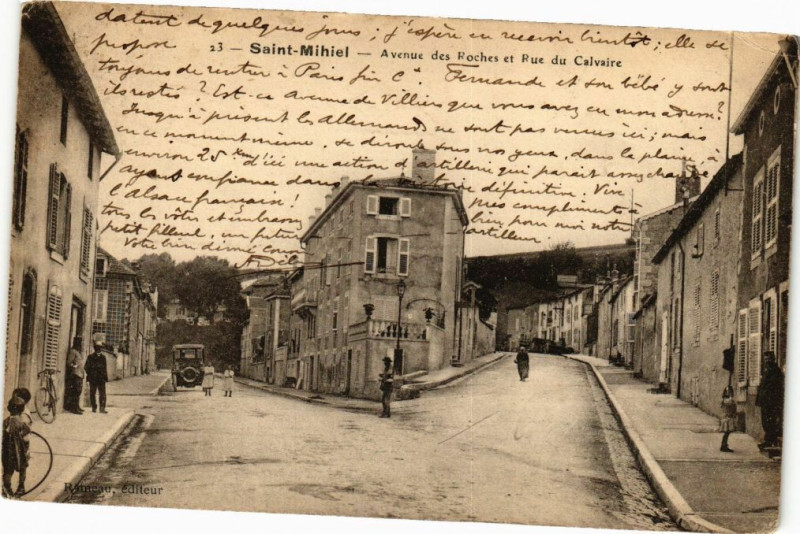 datent de quelques jours ; j'espère en recevoir bientôt ; elle se
propose
23 — Saint-Mihiel — Avenue des Roches et Rue du Calvaire
toujours de rentrer à Paris fin Ct. Fernande et son bébé y sont
ils restés ? Est-ce Avenue de Villiers que vous avez eu mon adresse ?
Jusqu'à présent les Allemands ne sont pas venus ici ; mais
en ce moment même, se déroule sous nos yeux, dans la plaine, à
environ 25 km d'ici une action d'artillerie qui paraît assez chaude
Ayant confiance dans la victoire définitive. Vive
l'Alsace française ! Mes compliments
tous les vôtres et embrassez bien pour moi notre
petit filleul, un futur artilleur.
Votre bien dévoué
Raineau, éditeur